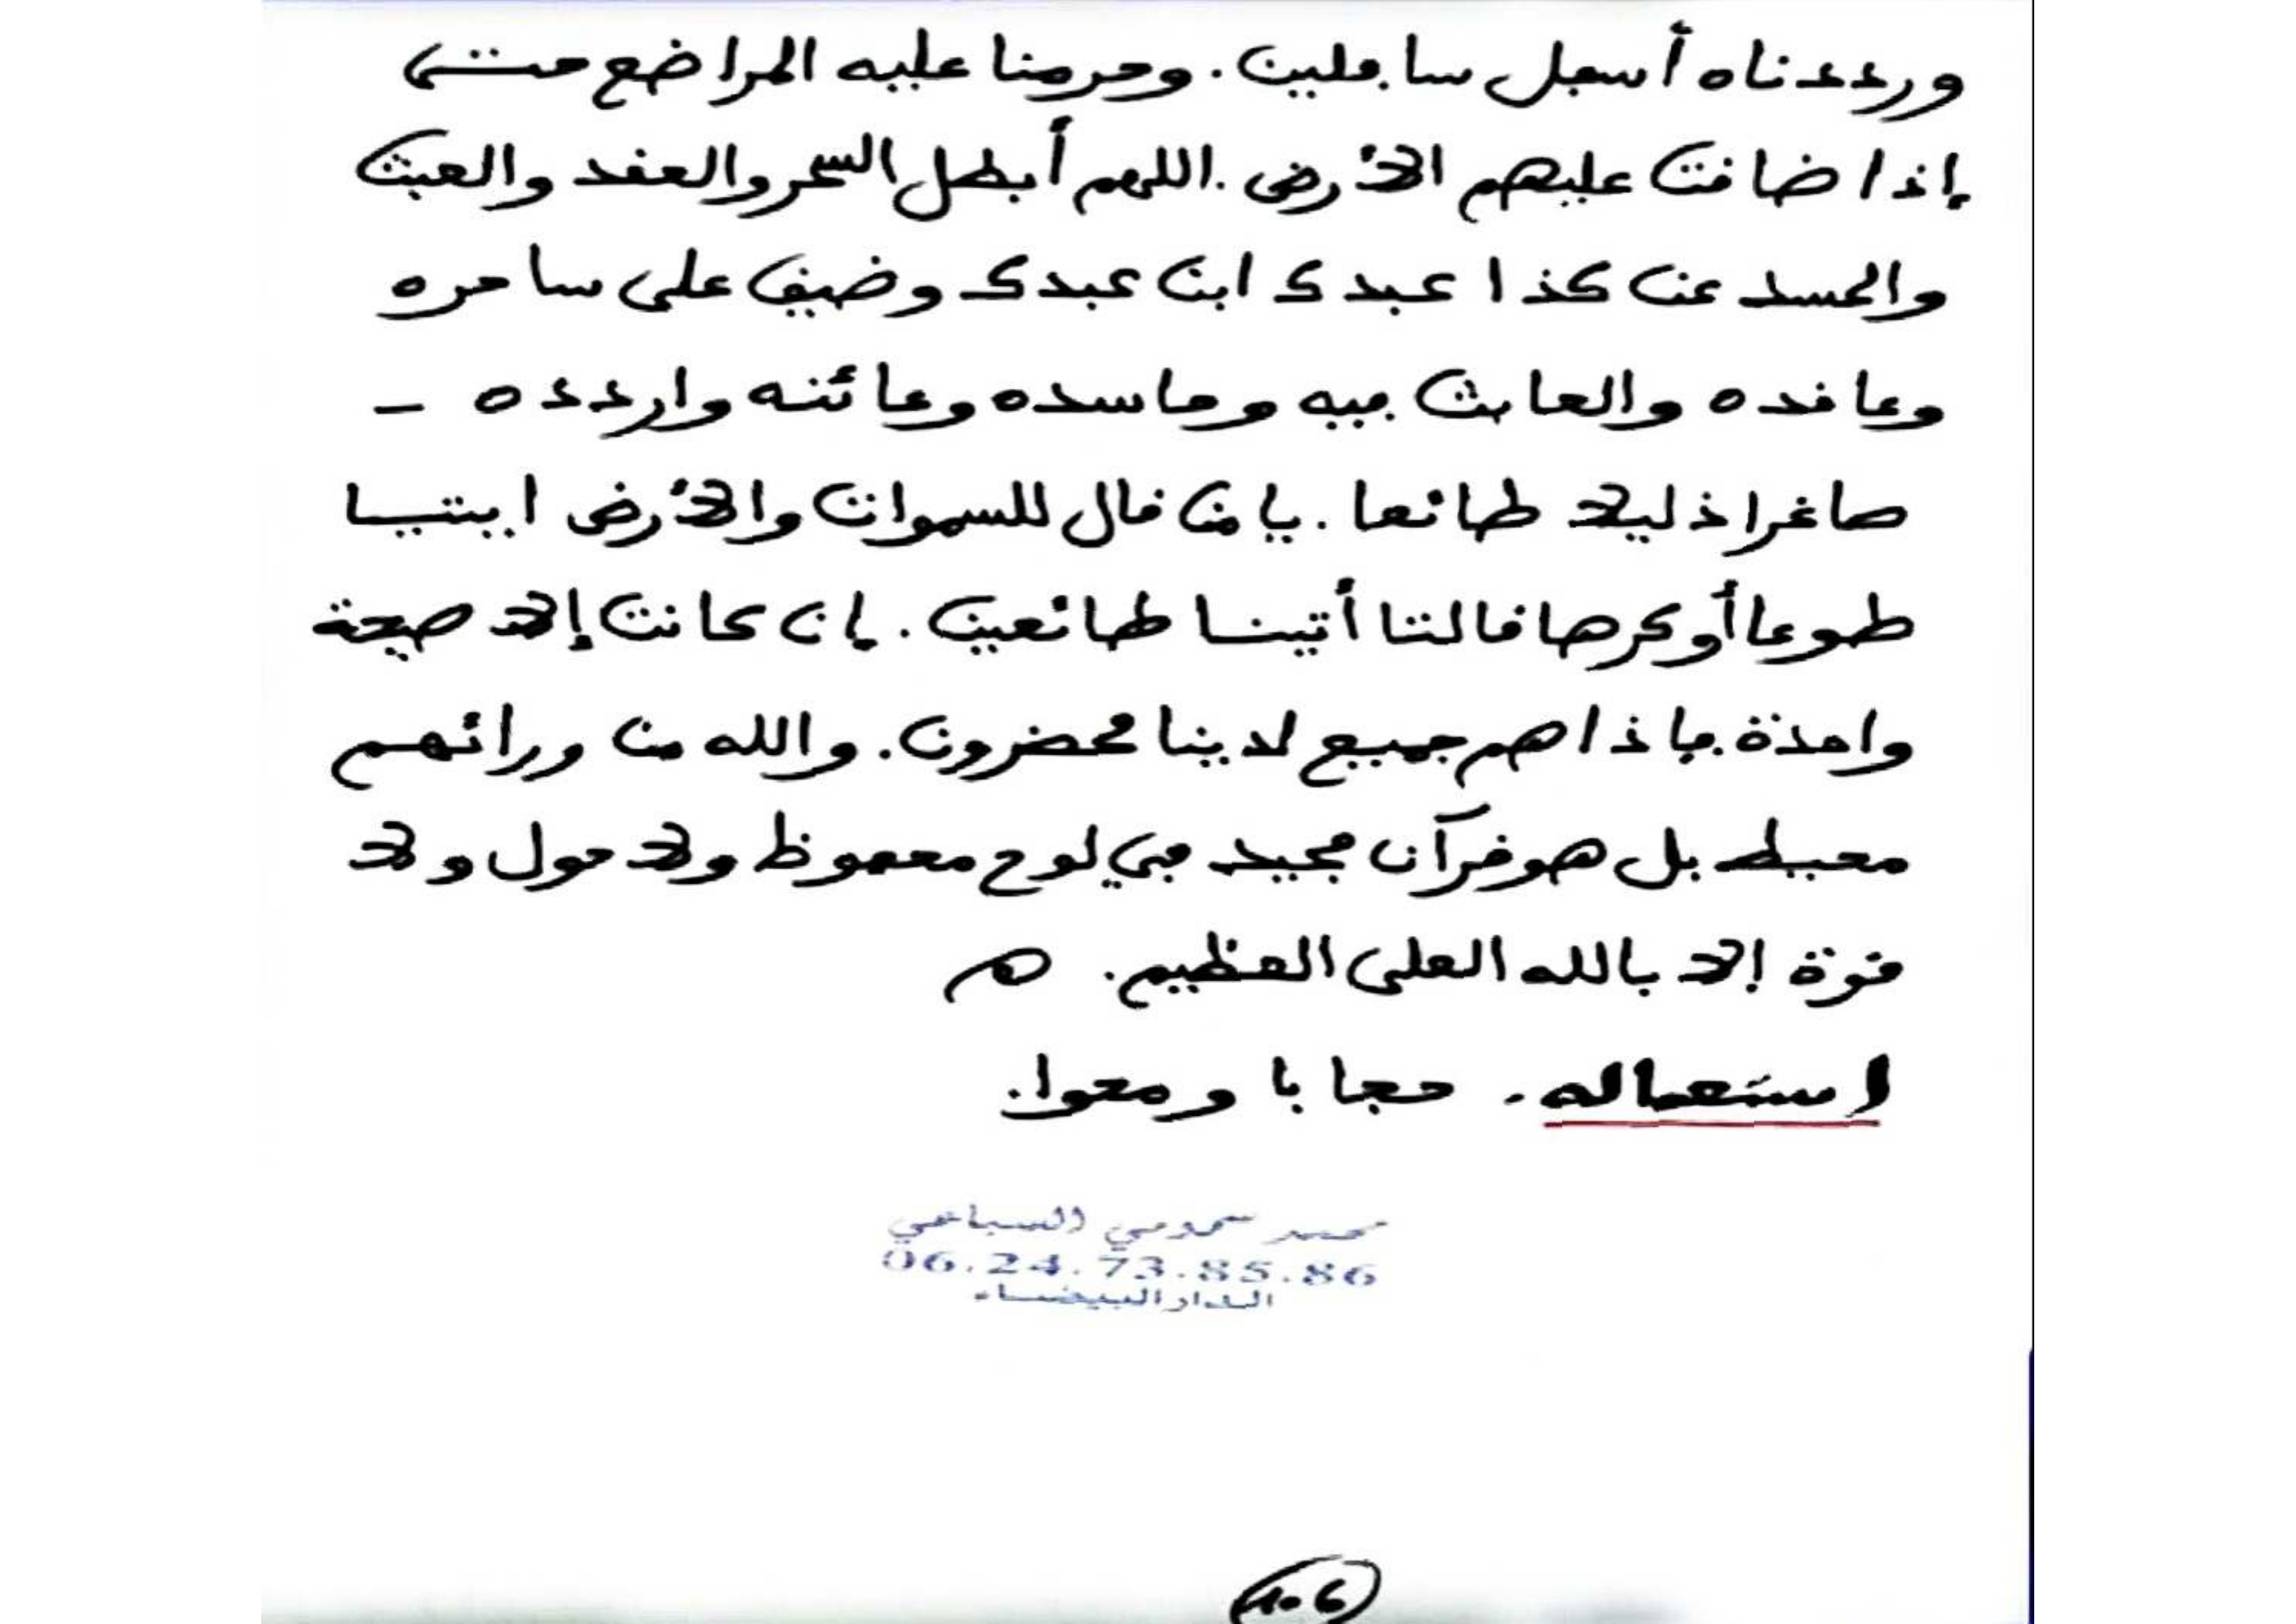 ورددناه أسفل سافلين. وحرمنا عليه المراضع حتى
إذا ضاقت عليهم الأرض. اللهم أبطل السحر والعقد والعبث
والحسد عن كذا عبدك ابن عبدك وضيق على ساحره
وعاقده والعابث فيه وحاسده وعائنه واردده –
صاغرا ذليلا طائعا. يا من قال للسموات والأرض ايتيا
طوعا أو كرها قالتا أتينا طائعين. إن كانت إلا صيحة
واحدة فإذا هم جميع لدينا محضرون. والله من ورائهم
محيط بل هو قرآن مجيد في لوح محفوظ ولا حول ولا
قوة إلا بالله العلي العظيم. هـ
استعماله. حجابا ومحوا.
محمد السباعي
06.24.73.85.86
الدار البيضاء
106